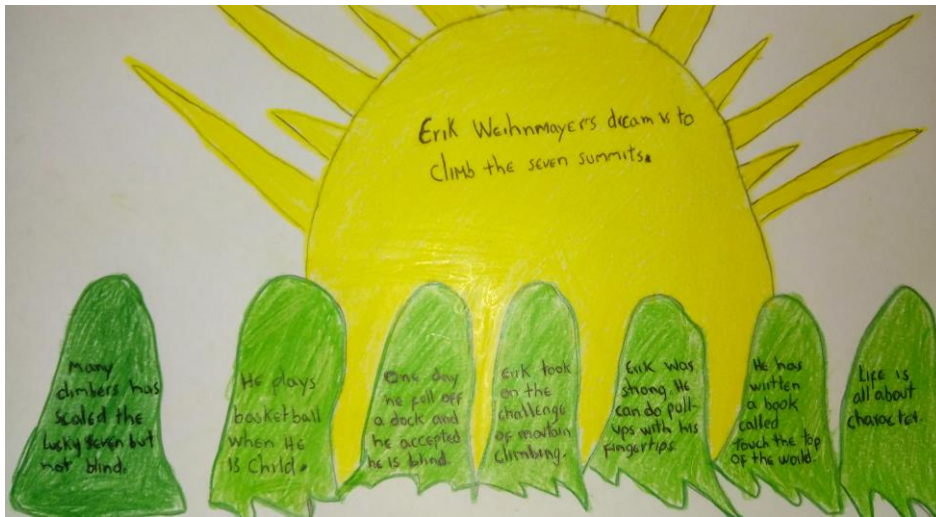 Erik Weihnmayer's dream is to
climb the seven summits.
Many
climbers has
scaled the
lucky seven but
not blind.
He plays
basketball
when He
is child.
One day
he fell off
a dock and
he accepted
he is blind.
Erik took
on the
challenge
of montain
climbing.
Erik was
strong. He
can do pull-
ups with his
fingertips.
He has
written
a book
called
Touch the top
of the world.
Life is
all about
character.